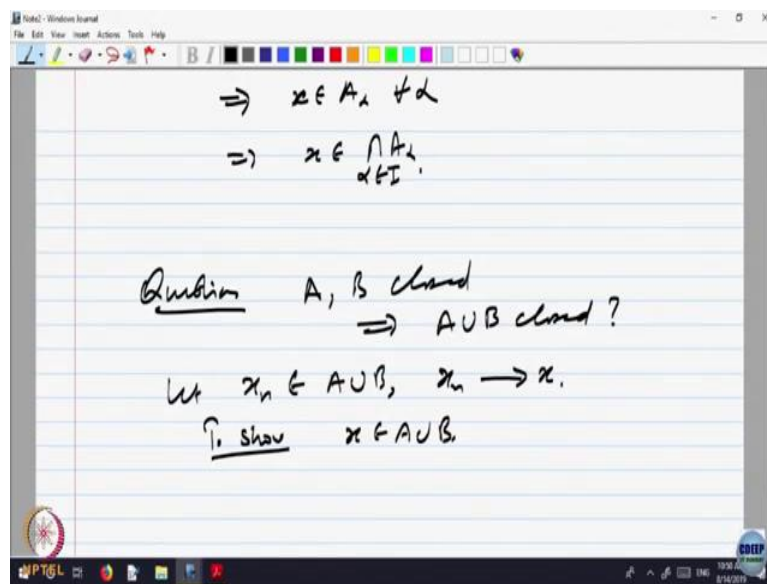 Note2 - Windows Journal
File Edit View Insert Actions Tools Help
B I
⇒ x ∈ A_α ∀ α
⇒ x ∈ ∩ A_α
α ∈ I .
Question A, B closed
⇒ A ∪ B closed ?
Let x_n ∈ A ∪ B, x_n → x.
To show x ∈ A ∪ B.
NPTEL
CDEEP
8/14/2019